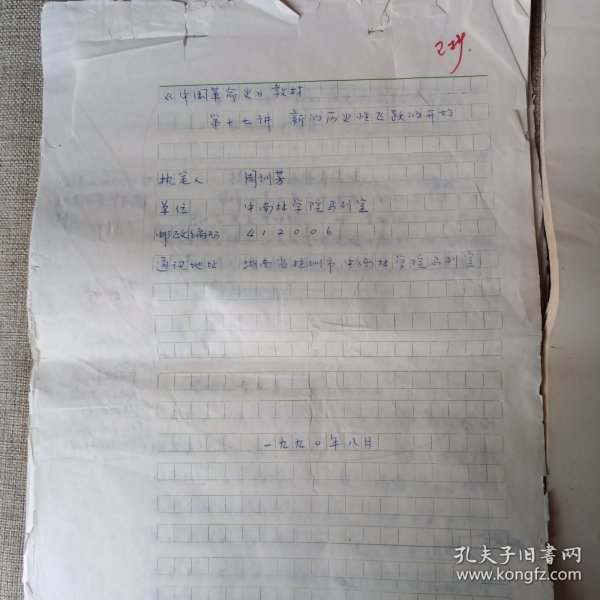 已排.
《中国革命史》教材
第十七讲 新的历史性飞跃的开始
执笔人 周训芳
单位 中南林学院马列室
邮政编码 412006
通讯地址 湖南省株洲市中南林学院马列室
一九九〇年八月
孔夫子旧书网
www.kongfz.com